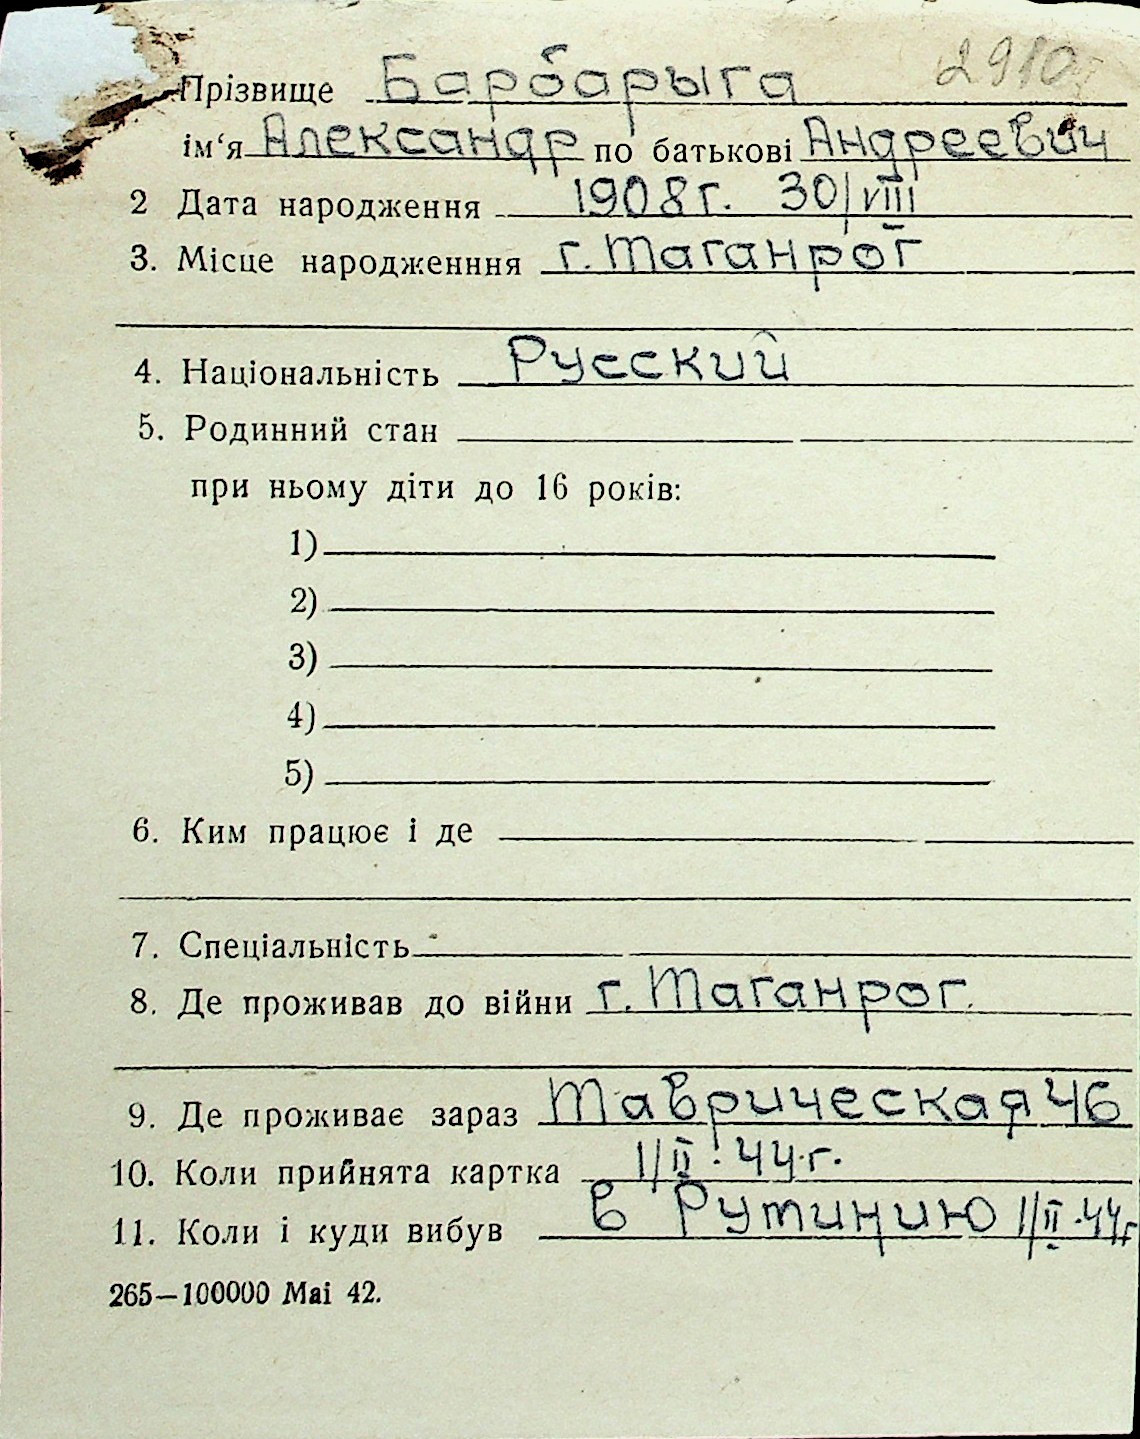 2910
Прізвище Барбарыга
ім‘я Александр по батькові Андреевич
2 Дата народження 1908 г. 30/VIII
3. Місце народженння г. Таганрог
4. Національність Русский
5. Родинний стан
при ньому діти до 16 років:
1)
2)
3)
4)
5)
6. Ким працює і де
7. Спеціальність
8. Де проживав до війни г. Таганрог.
9. Де проживає зараз Таврическая 46
10. Коли прийнята картка 1/II. 44.г.
11. Коли і куди вибув в Рутинию 1/II.44г
265—100000 Mai 42.